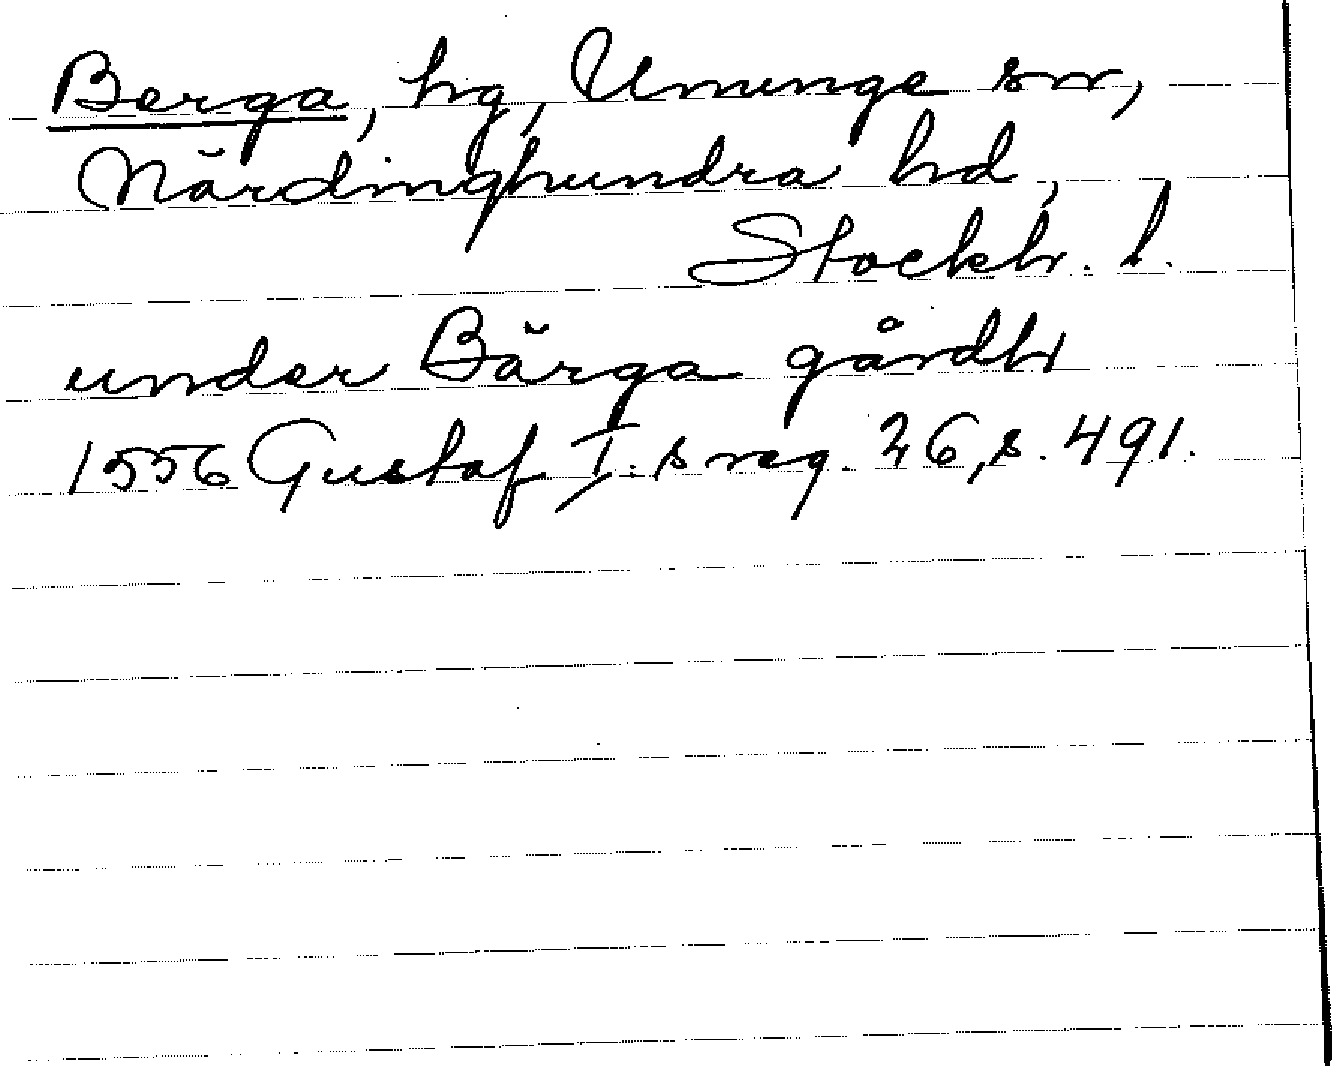 Berga, hg, Uninge sn,
Närdinghundra hd,
Stockh. l.
under Bärga gårdh
1556 Gustaf I.s reg. 26, s. 491.